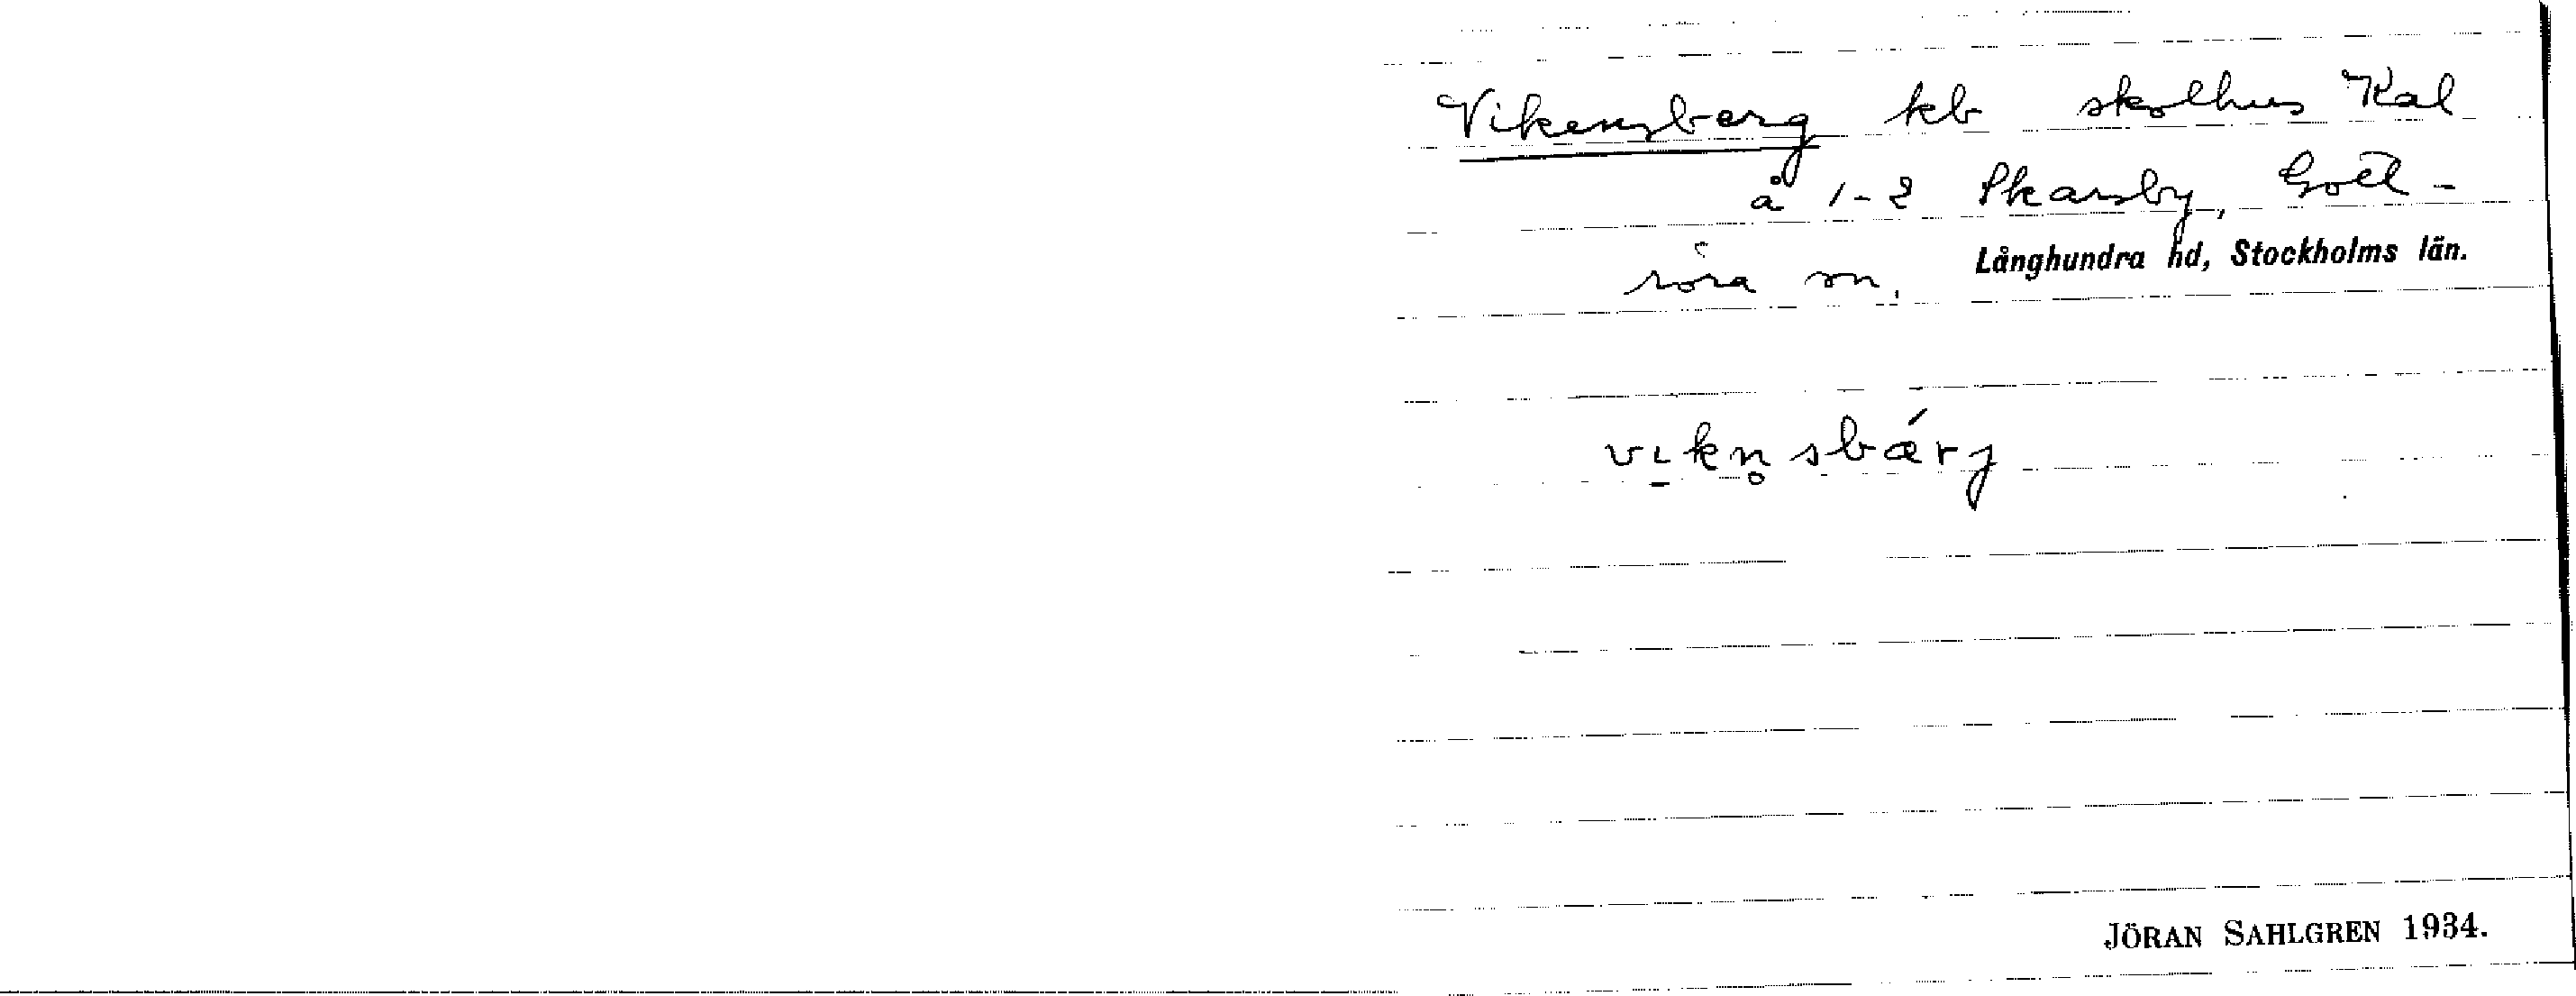 Vikensberg kb skolhus Kal
å 1-2 Skarsby, Gott-
röra sn. Långhundra hd, Stockholms län.
vɩkn̥sbǽrj
JÖRAN SAHLGREN 1934.